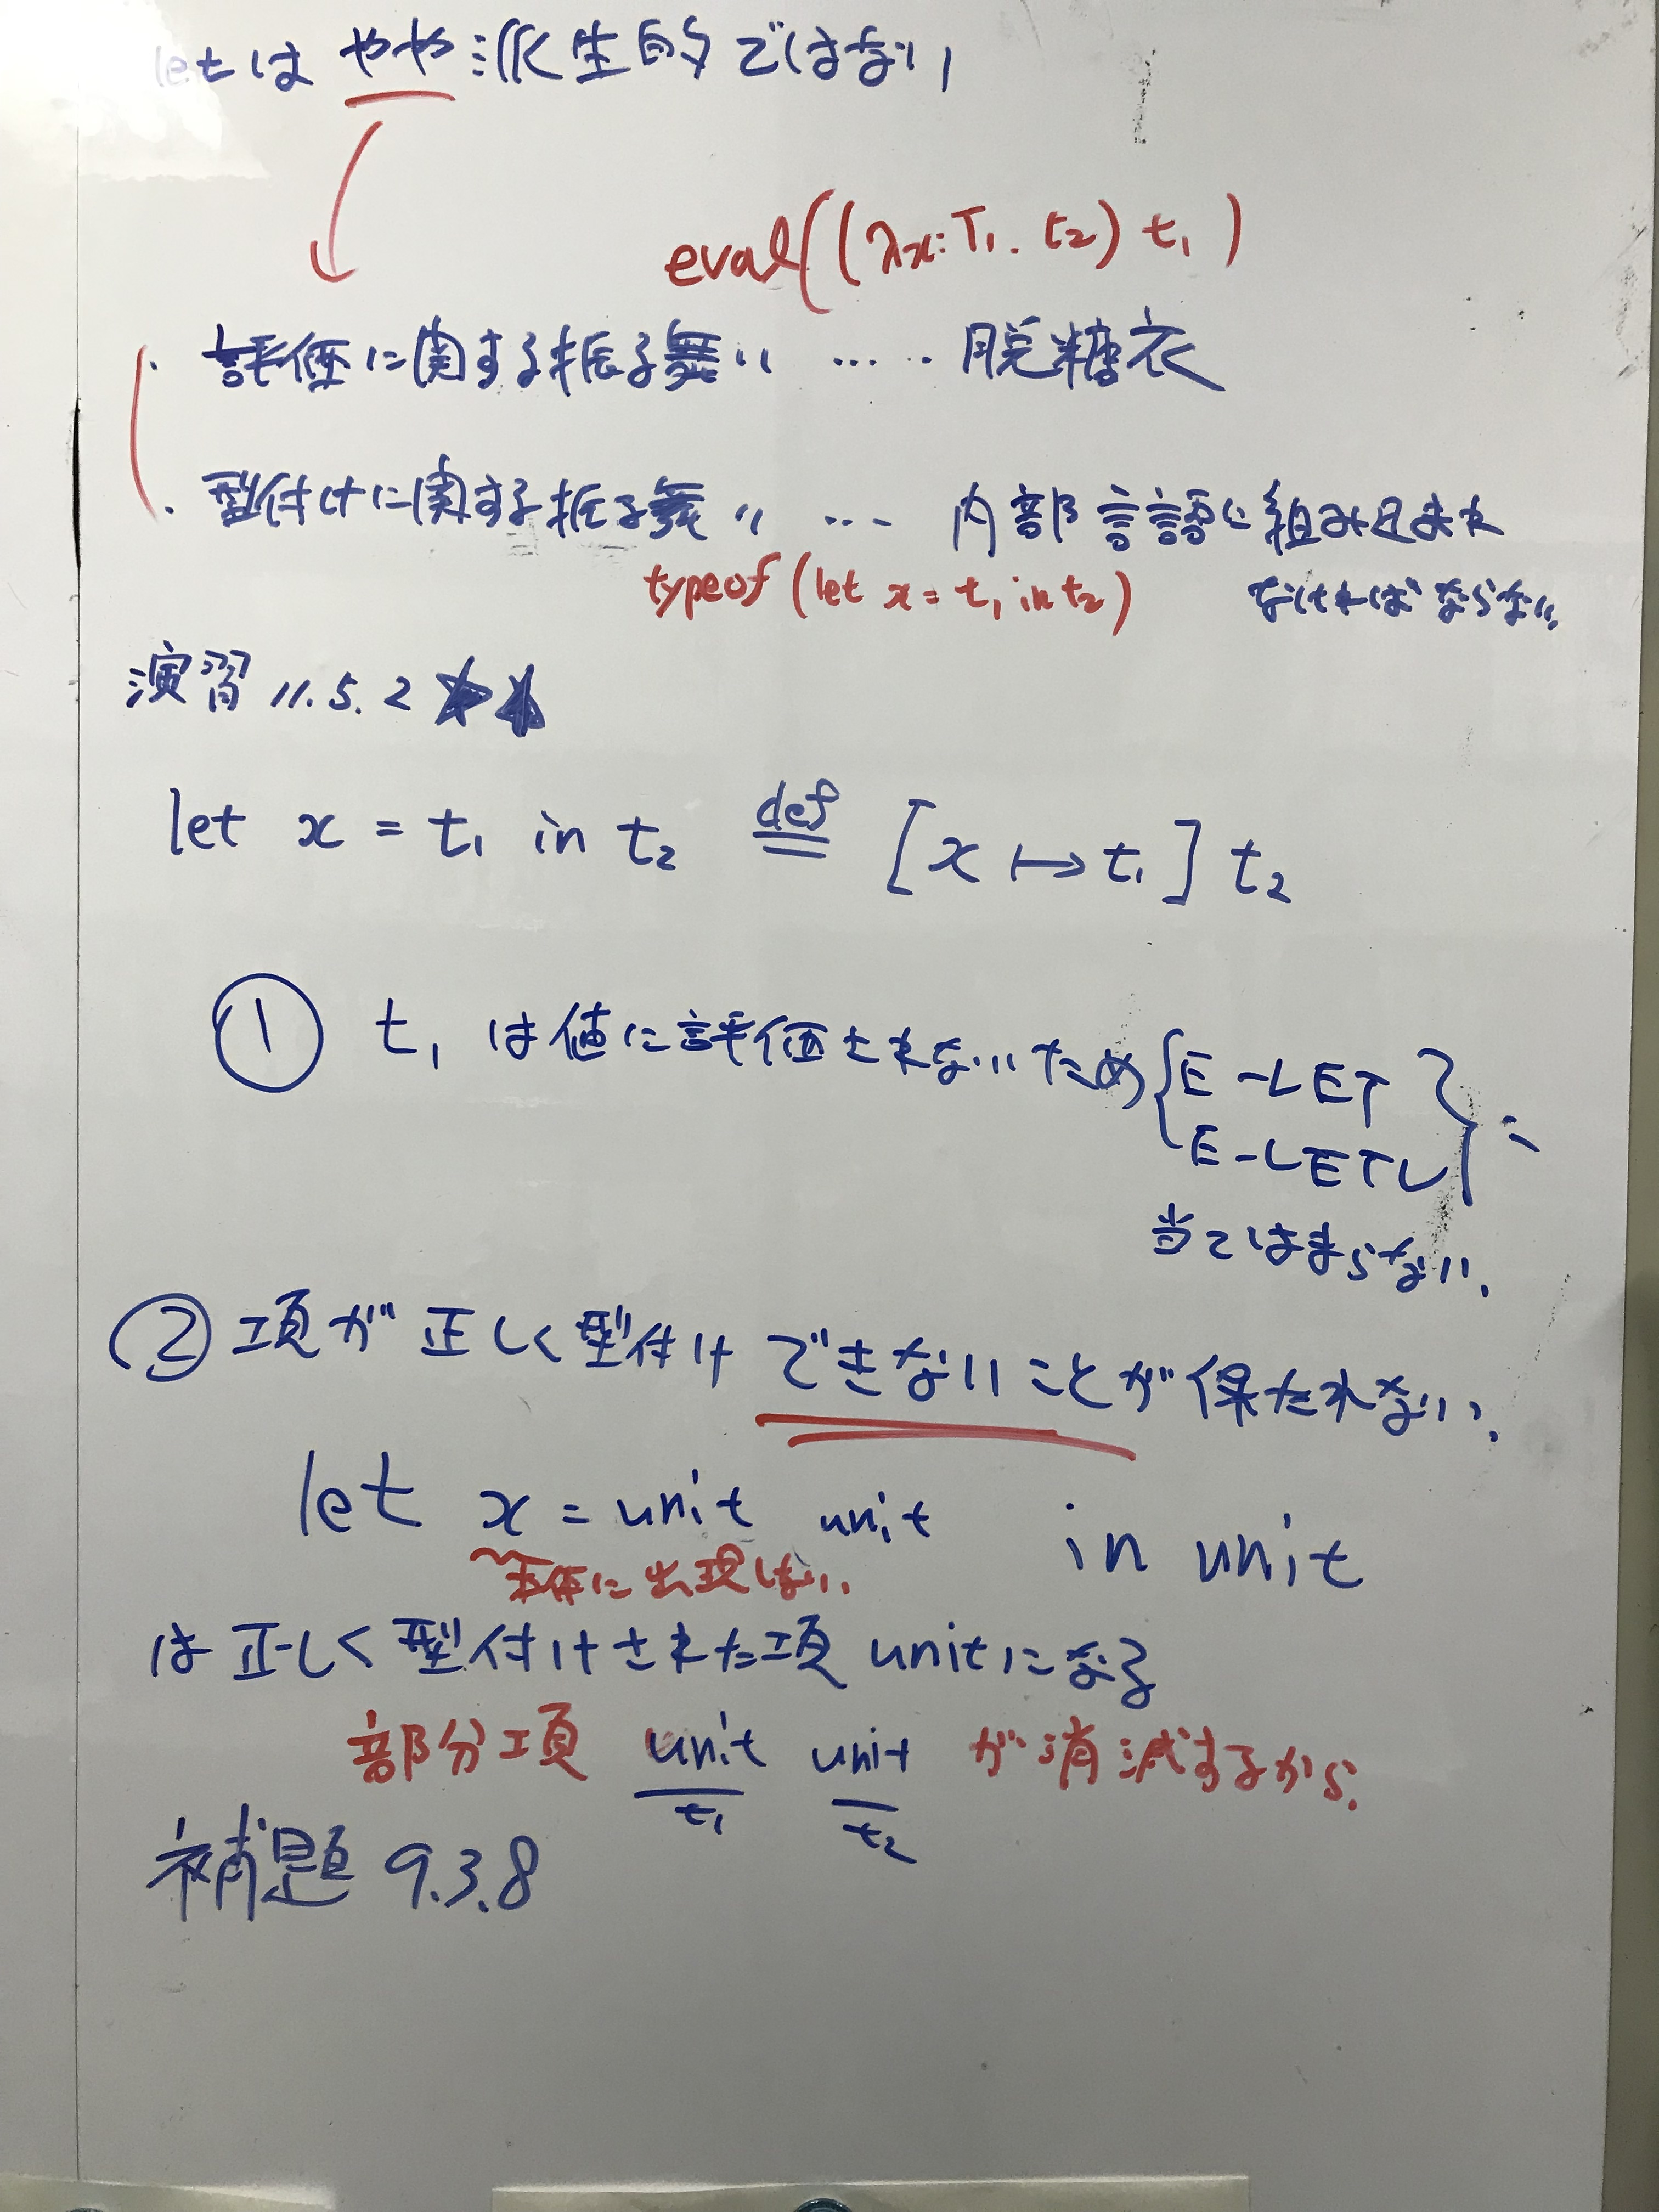 letは やや 派生的ではない
eval((λx:T₁. t₂) t₁)
・評価に関する振る舞い ..... 脱糖衣
・型付けに関する振る舞い ... 内部言語に組み込まれ
typeof (let x = t₁ in t₂)
なければならない。
演習 11.5.2 ★★
let x = t₁ in t₂ def= [x ↦ t₁] t₂
① t₁ は値に評価されないため { E-LET
E-LETV } に
当てはまらない.
② 項が正しく型付けできないことが保たれない.
let x = unit unit in unit
本体に出現しない.
は正しく型付けされた項 unitになる
部分項 unit unit が消滅するから.
t₁ t₂
補題 9.3.8